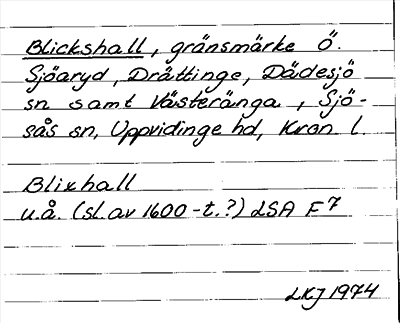 Blickshall, gränsmärke Ö.
Sjöaryd, Dråttinge, Dädesjö
sn samt Västeränga, Sjö-
sås sn, Uppvidinge hd, Kron l.
Blixhall
u.å. (sl. av 1600-t.?) LSA F7
LKJ 1974